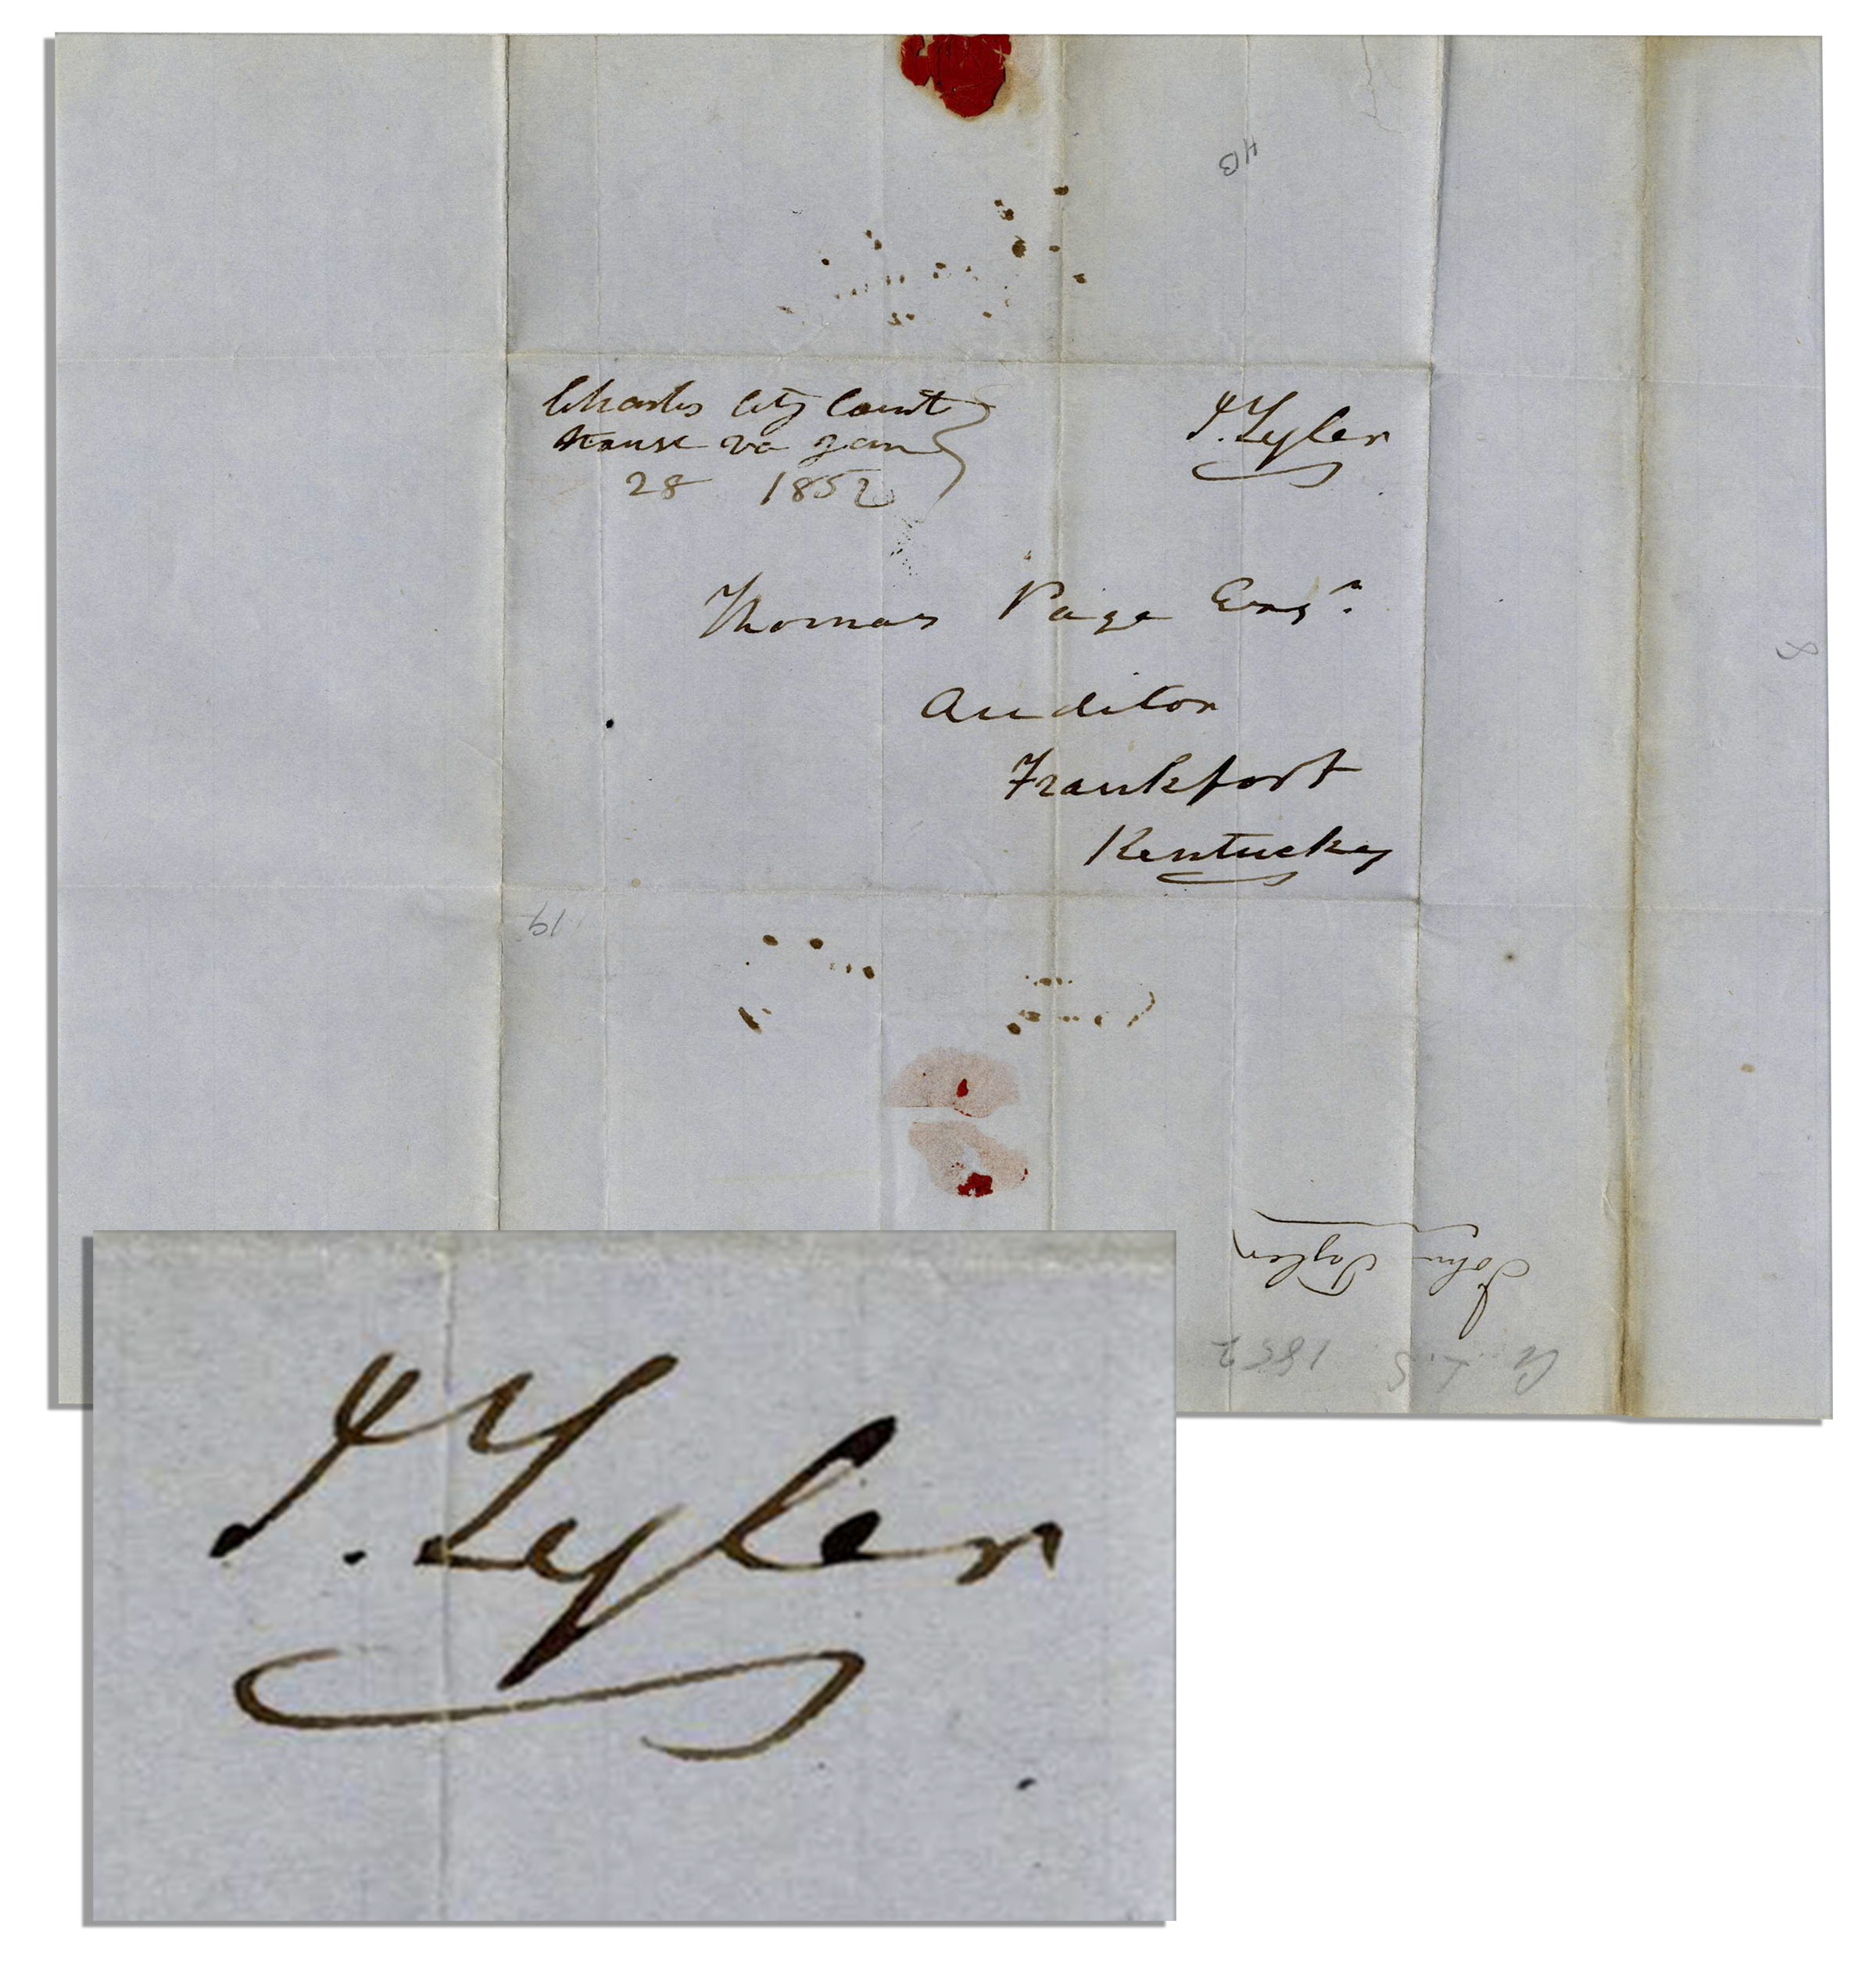 HB
Charles City Court
House va Jan
28 1852
J. Tyler
Thomas Page Esqr.
Auditor
Frankfort
Kentucky
8
19
John Tyler
1852
J. Tyler